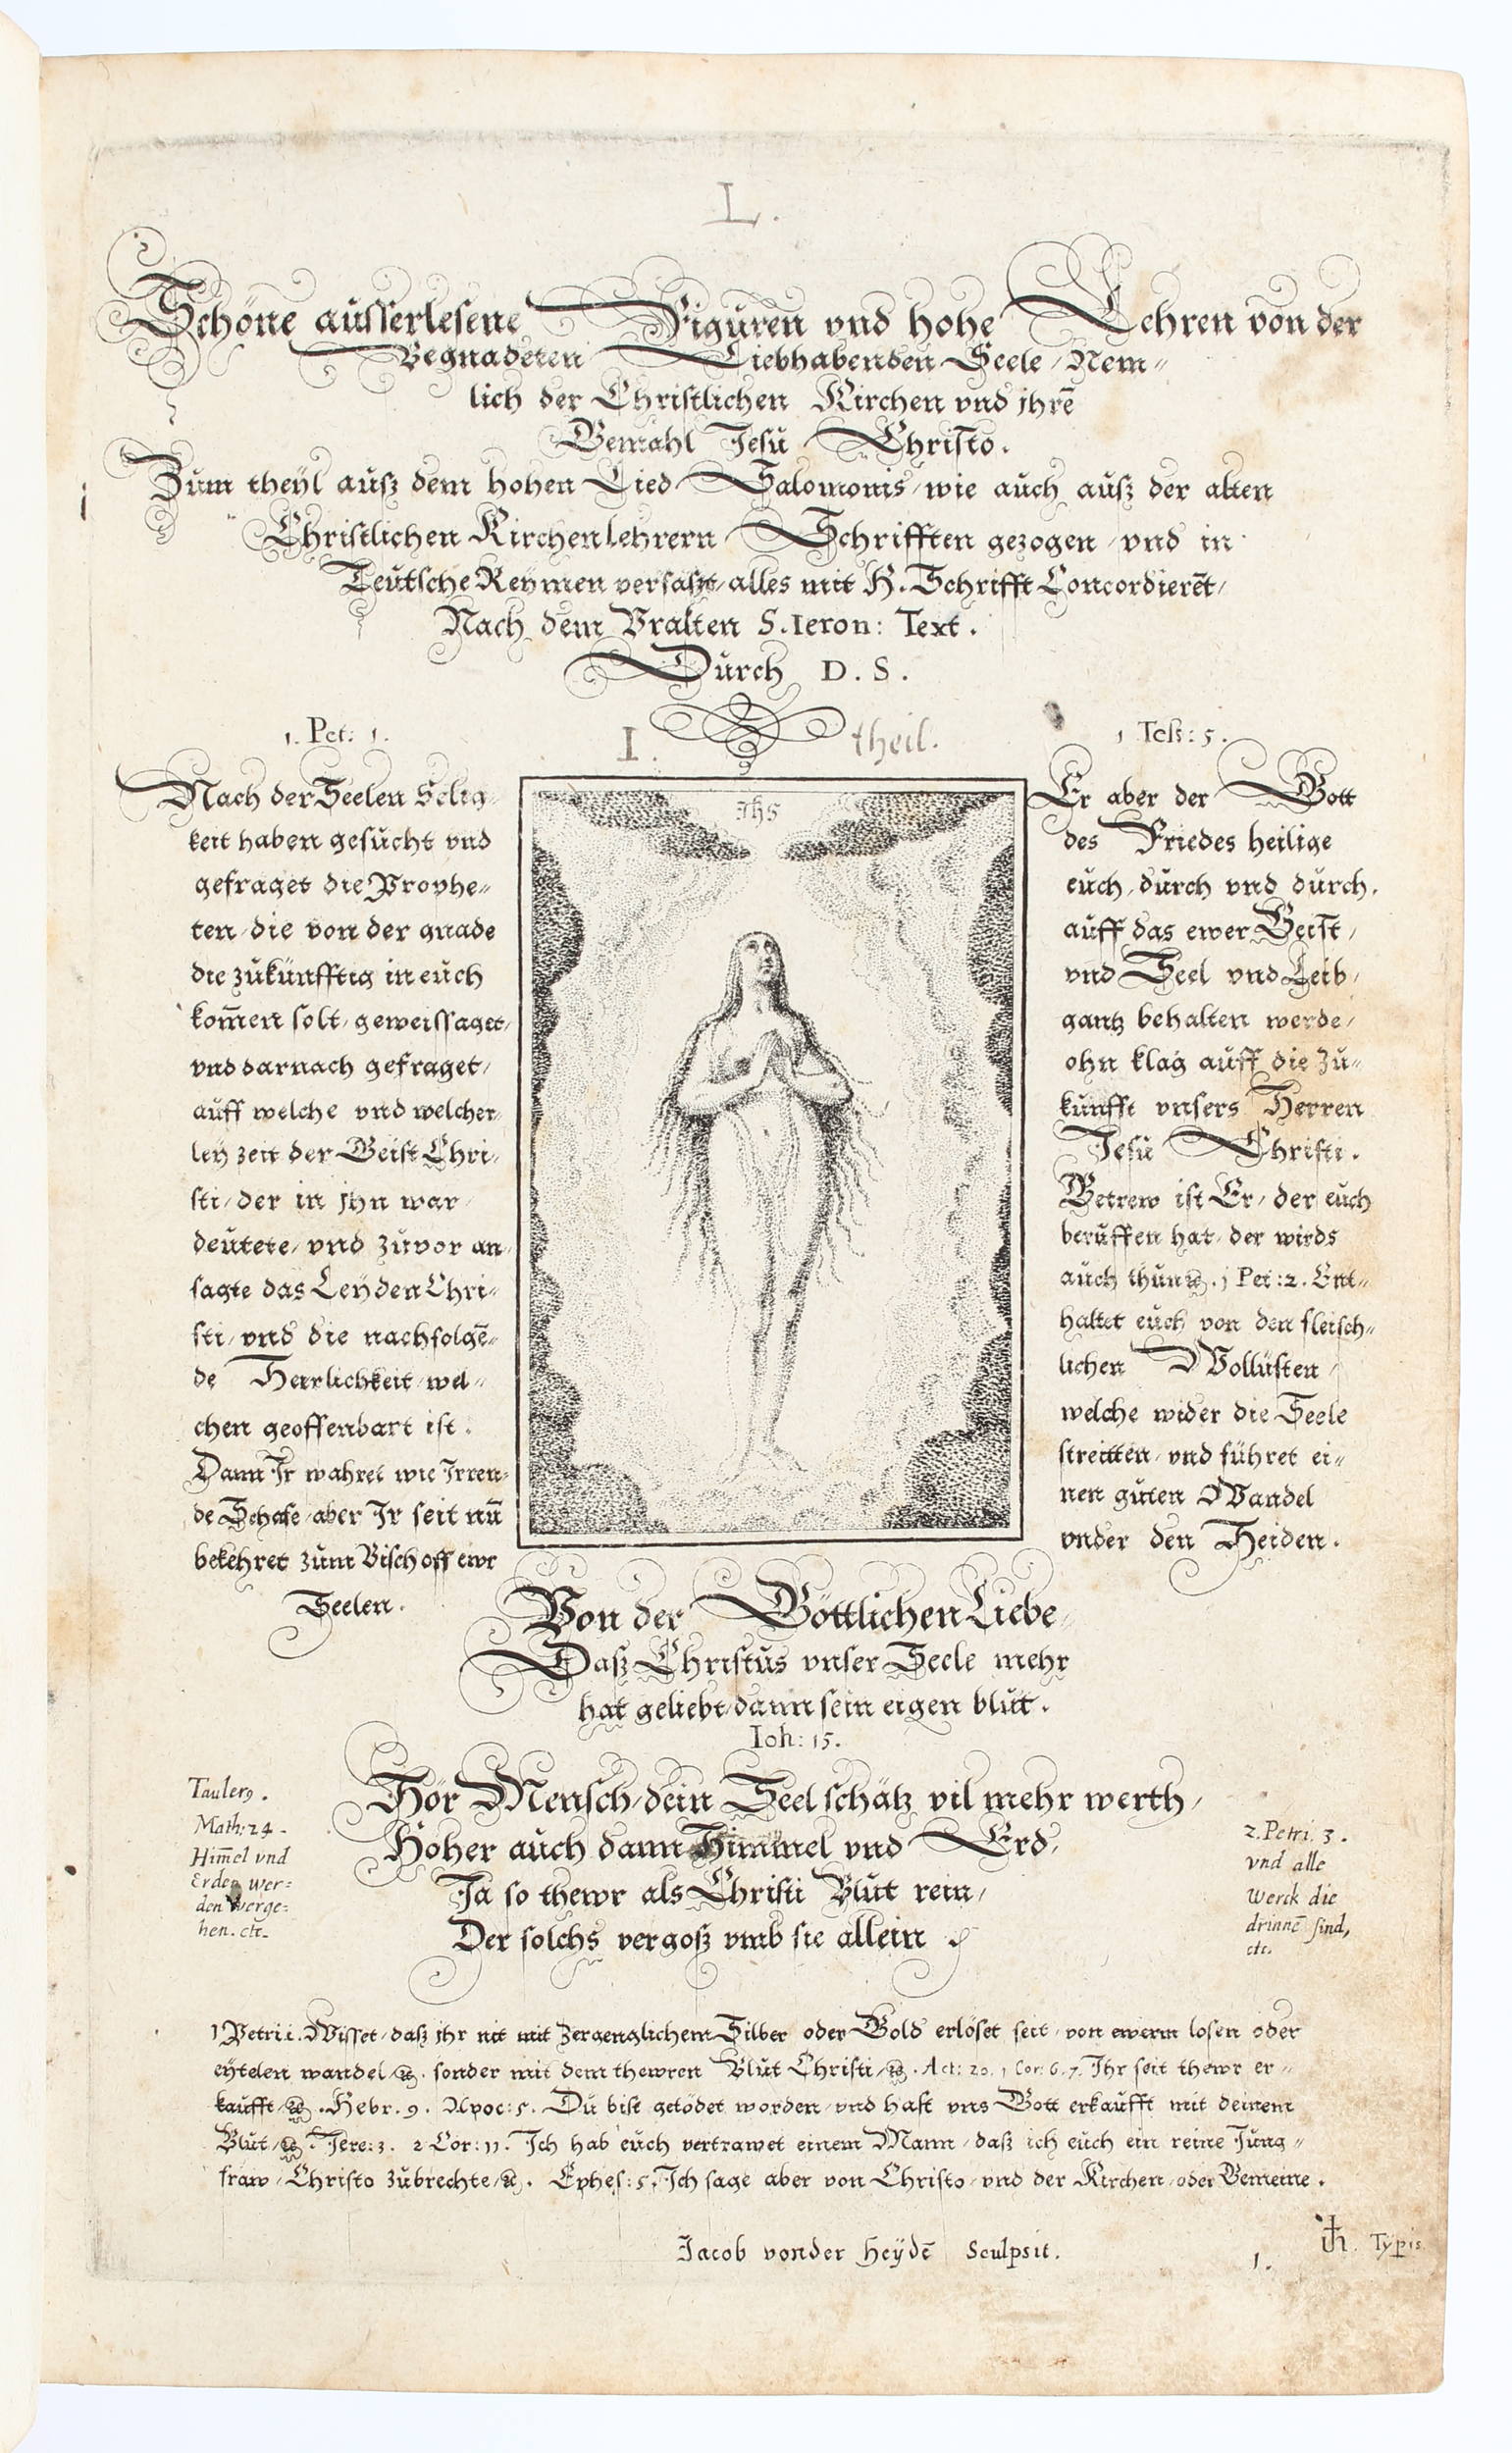 L.
Schöne ausserlesene Figuren vnd hohe Lehren von der
Begnadeten Liebhabenden Seele / Nem=
lich der Christlichen Kirchen vnd jhrē
Gemahl Jesu Christo.
Zum theÿl auß dem hohen Lied Salomonis / wie auch auß der alten
Christlichen Kirchenlehrern Schrifften gezogen / vnd in
Teutsche Reÿmen versaßt / alles mit H. Schrifft Concordierēt /
Nach dem Vralten S. Ieron: Text.
Durch D. S.
I. theil.
1. Pet: 1.
Nach der Seelen Selig=
keit haben gesucht vnd
gefraget die Prophe=
ten / die von der gnade
die zukünfftig in euch
kom̄en solt / geweissaget /
vnd darnach gefraget /
auff welche vnd welcher
leÿ zeit der Geist Chri=
sti / der in jhn war /
deutete / vnd zuvor an=
sagte das Leÿden Chri=
sti / vnd die nachfolgē=
de Herrlichkeit / wel=
chen geoffenbart ist.
Dann Ir wahret wie Irren=
de Schafe / aber Ir seit nū
bekehret zum Bischoff ewr
Seelen.
Ihs
1 Teß: 5.
Er aber der Gott
des Friedes heilige
euch / durch vnd durch.
auff das ewer Geist /
vnd Seel vnd Leib /
gantz behalten werde /
ohn klag auff die Zu=
kunfft vnsers Herren
Jesu Christi.
Getrew ist Er / der euch
beruffen hat / der wirds
auch thun ꝛc. 1 Pet: 2. Ent=
haltet euch von den fleisch=
lichen Wollüsten /
welche wider die Seele
streitten / vnd führet ei=
nen guten Wandel
vnder den Heiden.
Von der Göttlichen Liebe /
Daß Christus vnser Seele mehr
hat geliebt / dann sein eigen blut.
Ioh: 15.
Hör Mensch / dein Seel schätz vil mehr werth /
Höher auch dann Himmel vnd Erd /
Ja so thewr als Christi Blut rein /
Der solchs vergoß vmb sie allein
Taulerꝰ.
Math: 24.
Him̄el vnd
Erden wer=
den verge=
hen. etc.
2. Petri. 3.
vnd alle
Werck die
drinnē sind,
etc.
1 Petri. 1. Wisset / daß jhr nit mit zergenglichem Silber oder Gold erlöset seit / von ewerm losen oder
eÿtelen wandel / ꝛc. sonder mit dem thewren Blut Christi / ꝛc. Act: 20. 1 Cor: 6. 7. Ihr seit thewr er=
kaufft / ꝛc. Hebr. 9. Apoc: 5. Du bist getödet worden / vnd hast vns Gott erkaufft mit deinem
Blut / ꝛc. Jere: 3. 2 Cor: 11. Ich hab euch vertrawet einem Mann / daß ich euch ein reine Jung=
fraw / Christo zubrechte / ꝛc. Ephes: 5. Ich sage aber von Christo / vnd der Kirchen / oder Gemeine.
Jacob vonder Heÿdē Sculpsit.
1.
Typis